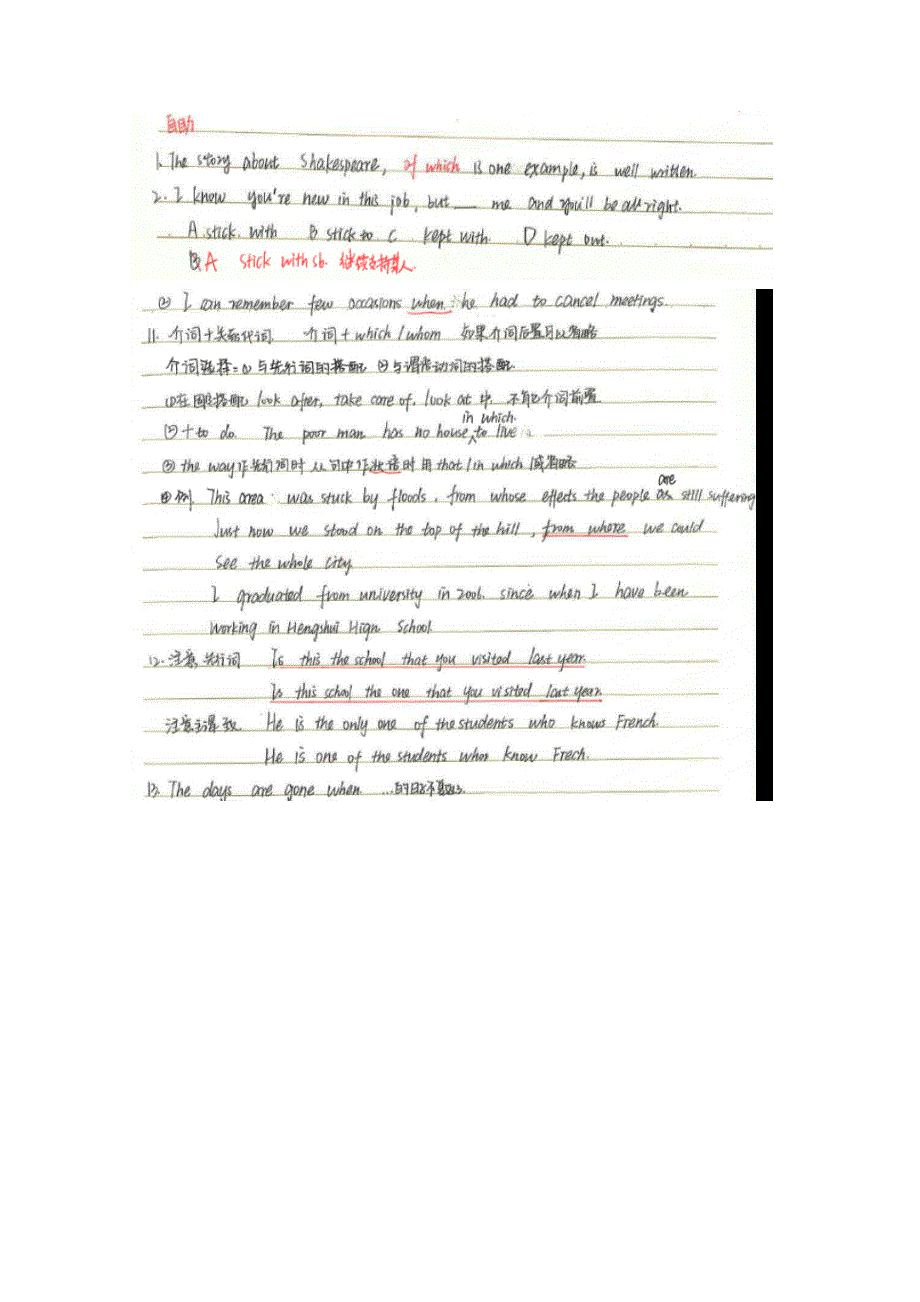 自助
1. The story about Shakespeare, of which is one example, is well written.
2. I know you're new in this job, but ___ me and you'll be all right.
A stick with B stick to C kept with. D kept out.
A stick with sb. 继续支持某人.
② I can remember few occasions when he had to cancel meetings.
11. 介词+关系代词 介词+which/whom 如果介词后置可以省略
介词选择=①与先行词的搭配 ②与谓语动词的搭配
①在固定搭配 look after, take care of, look at 中, 不能把介词前置
②+to do. The poor man has no house in which to live
③ the way作先行词时 从句中作状语时用 that/in which 或省略
④例. This area was stuck by floods, from whose effects the people are still suffering
Just now we stood on the top of the hill, from where we could
see the whole city
I graduated from university in 2006. since when I have been
working in Hengshui Hign School
12. 注意先行词 Is this the school that you visited last year.
Is this school the one that you visited last year.
注意主谓一致 He is the only one of the students who knows French.
He is one of the students who know Frech.
13. The days are gone when ...的日子不复返了.